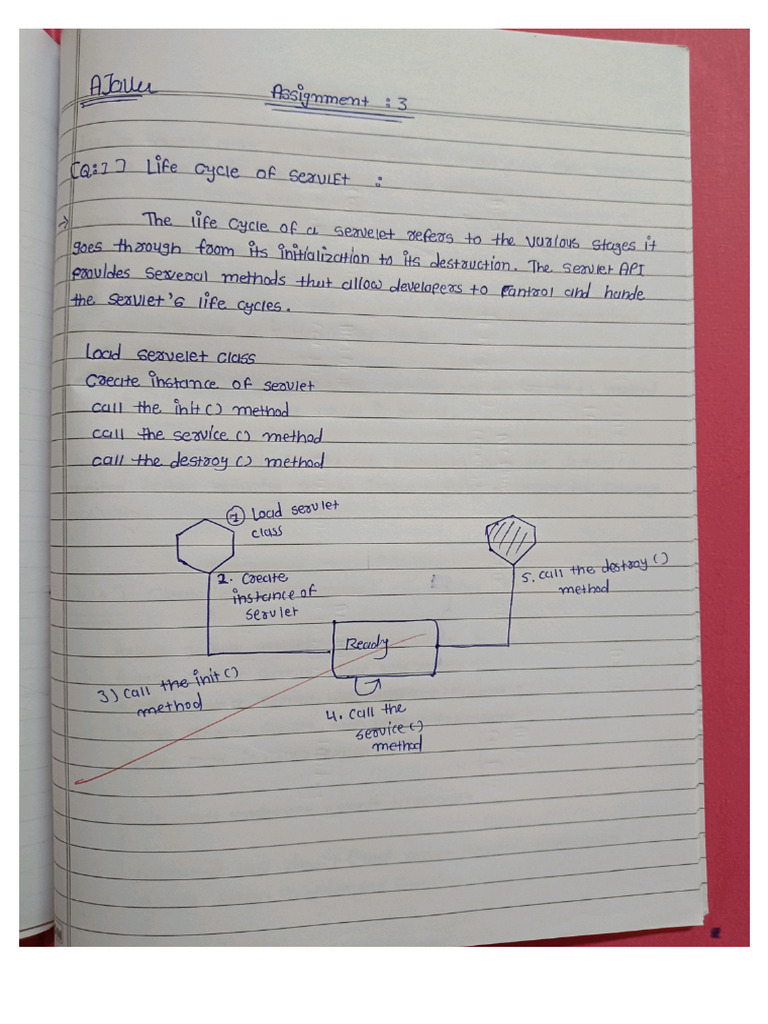 AJava
Assignment : 3
[Q:1] Life cycle of servlet :
→ The life cycle of a servelet refers to the various stages it
goes through from its initialization to its destruction. The servlet API
provides several methods that allow developers to control and hande
the servlet's life cycles.
Load servelet class
Create instance of servlet
call the init() method
call the service() method
call the destroy() method
1 Load servlet
class
2. Create
instance of
servlet
5. call the destroy()
method
Ready
3) call the init()
method
4. call the
service()
method